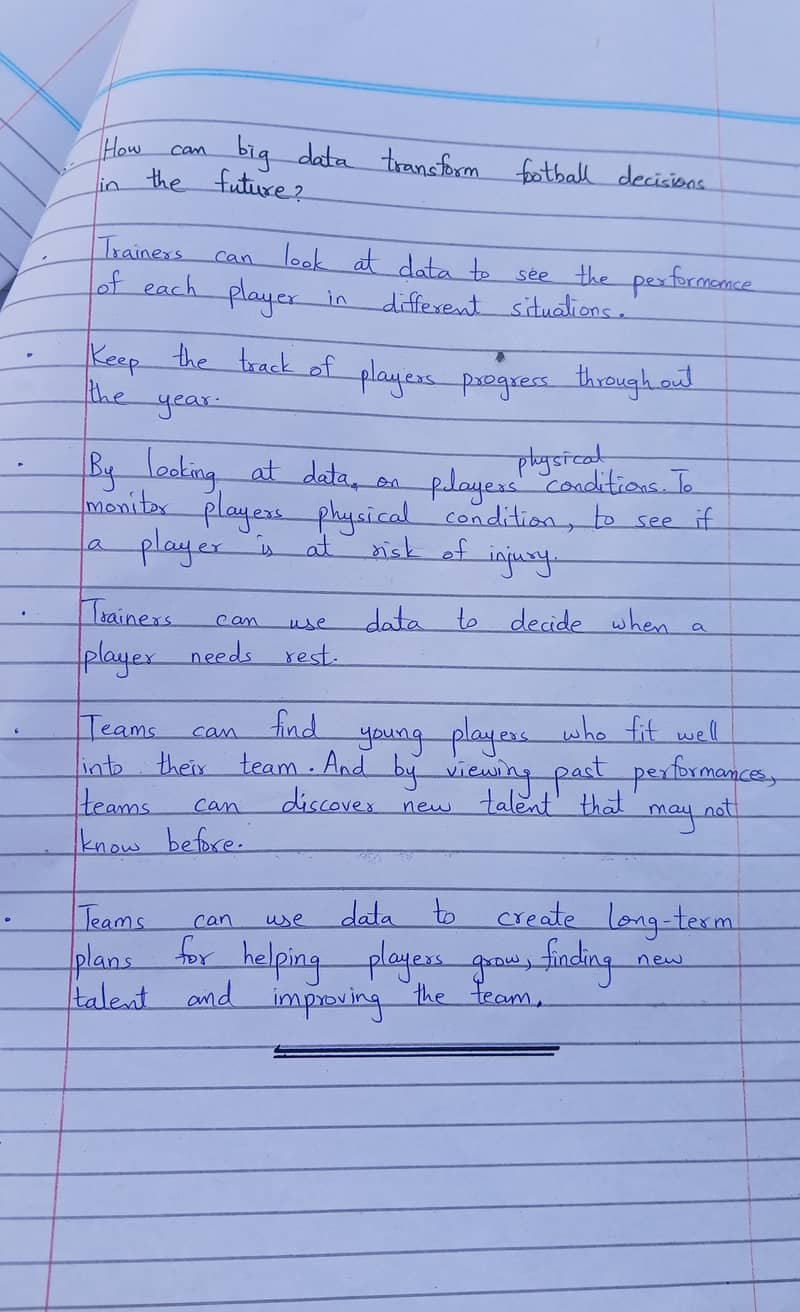 How can big data transform football decisions
in the future?
. Trainers can look at data to see the performance
of each player in different situations.
. Keep the track of players progress throughout
the year.
physical
. By looking at data, on players conditions. To
monitor players physical condition, to see if
a player is at risk of injury.
. Trainers can use data to decide when a
player needs rest.
. Teams can find young players who fit well
into their team. And by viewing past performances,
teams can discover new talent that may not
know before.
. Teams can use data to create long-term
plans for helping players grow, finding new
talent and improving the team.